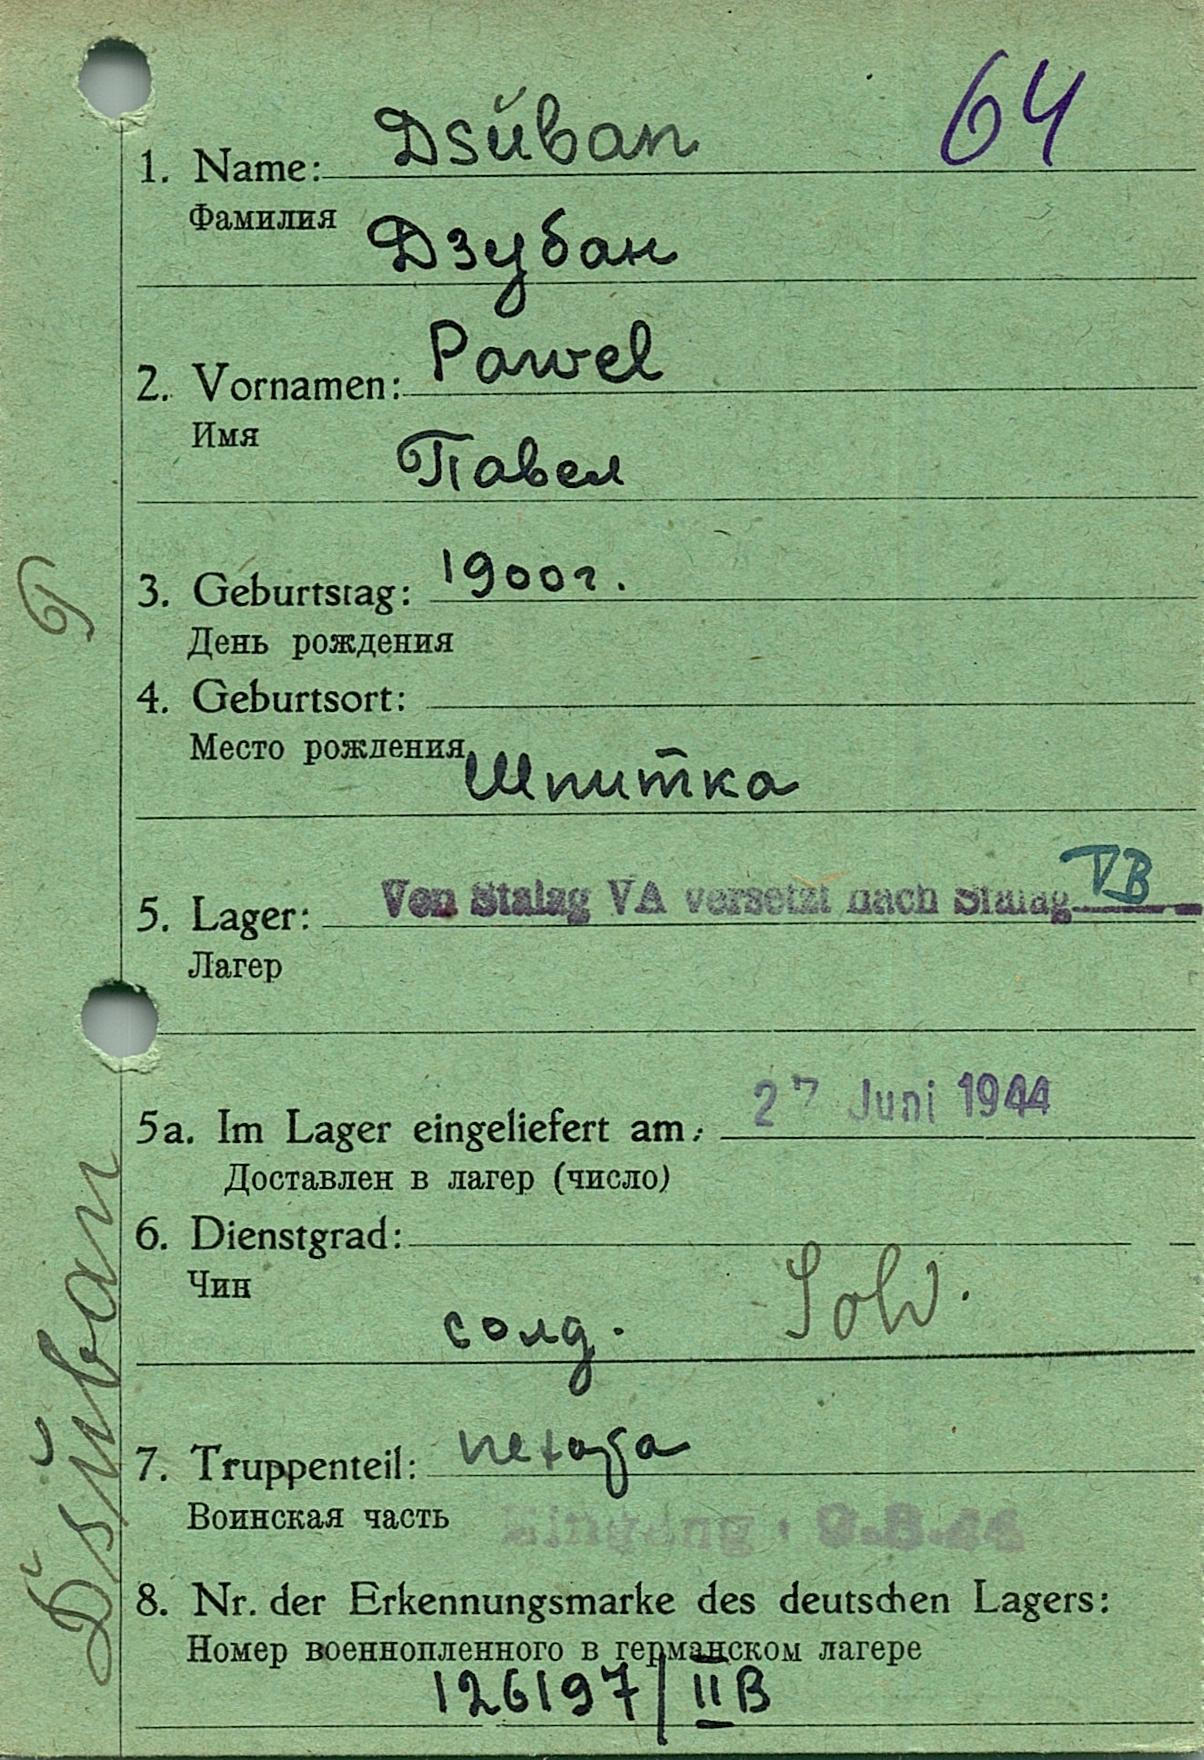 64
1. Name: Dsŭban
Фамилия
Дзубан
2. Vornamen: Pawel
Имя
Павел
3. Geburtstag: 1900г.
День рождения
4. Geburtsort:
Место рождения
Шпитка
5. Lager: Von Stalag VA versetzt nach Stalag VB
Лагер
5a. Im Lager eingeliefert am: 27 Juni 1944
Доставлен в лагер (число)
6. Dienstgrad:
Чин
солд. Sold.
7. Truppenteil:
Воинская часть
Eingang
8. Nr. der Erkennungsmarke des deutschen Lagers:
Номер военнопленного в германском лагере
126197/IIB
Dsŭban